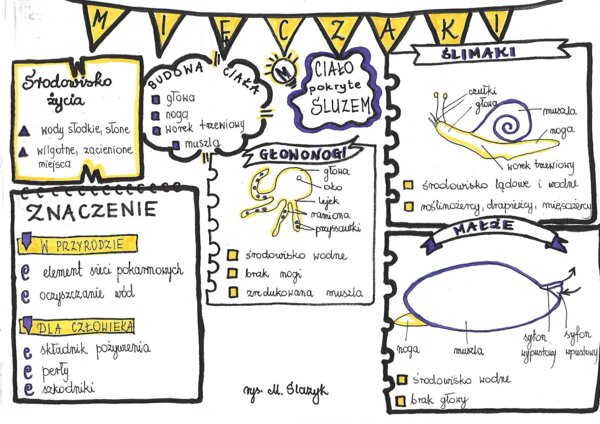 MIĘCZAKI
Środowisko
życia
wody słodkie, słone
wilgotne, zacienione
miejsca
BUDOWA CIAŁA
głowa
noga
worek trzewiowy
muszla
CIAŁO
pokryte
ŚLUZEM
ŚLIMAKI
czułki
głowa
muszla
noga
worek trzewiowy
środowisko lądowe i wodne
roślinożercy, drapieżcy, mięsożercy
GŁOWONOGI
głowa
oko
lejek
ramiona
przyssawki
środowisko wodne
brak nogi
zredukowana muszla
ZNACZENIE
W PRZYRODZIE
element sieci pokarmowych
oczyszczanie wód
DLA CZŁOWIEKA
składnik pożywienia
perły
szkodniki
MAŁŻE
noga
muszla
syfon
wypustowy
syfon
wpustowy
środowisko wodne
brak głowy
rys. M.